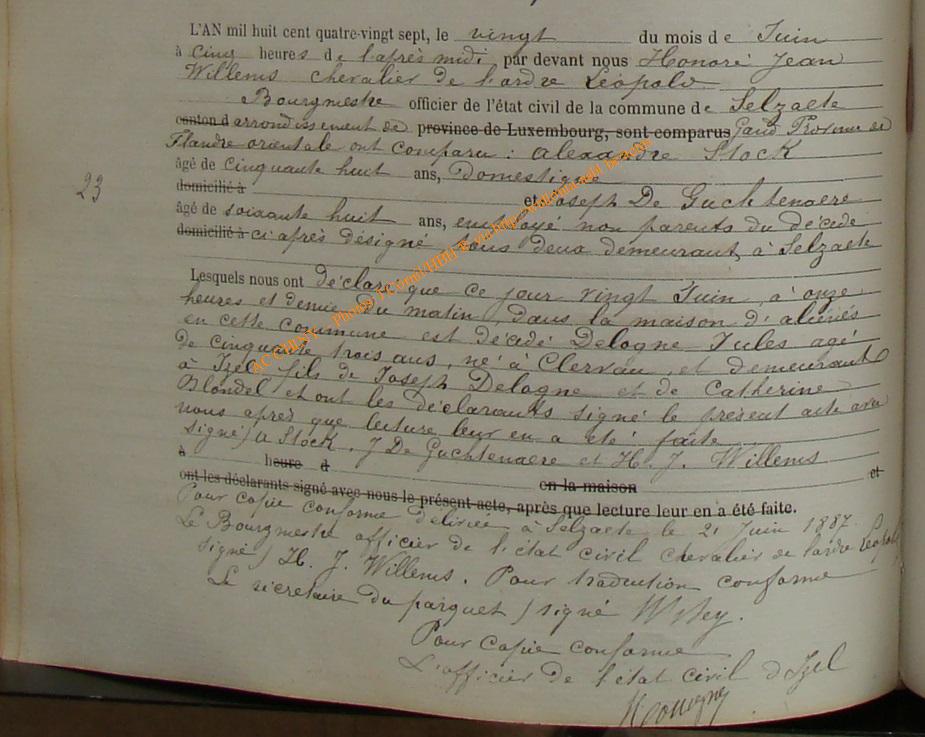 L'AN mil huit cent quatre-vingt sept, le vingt du mois de Juin
à cinq heures de l'après midi, par devant nous Honoré Jean
Willems chevalier de l'ordre Léopold
Bourgmestre officier de l'état civil de la commune de Selzaete
canton d arrondissement de province de Luxembourg, sont comparus Gand Province de
Flandre orientale ont comparu : Alexandre Stock
âgé de cinquante huit ans, domestique
domicilié à et Joseph De Guchtenaere
23
âgé de soixante huit ans, employé non parents du décédé
domicilié à ci après désigné tous deux demeurant à Selzaete
Lesquels nous ont déclaré que ce jour vingt Juin, à onze
heures et demie du matin, dans la maison d'aliénés
en cette commune est décédé Delogne Jules agé
de cinquante trois ans, né à Clervau, et demeurant
à Izel fils de Joseph Delogne et de Catherine
Blondel et ont les déclarants signé le présent acte avec
nous après que lecture leur en a été faite
Signé) A Stock. J De Guchtenaere et H. J. Willems
à heure d en la maison et
ont les déclarants signé avec nous le présent acte, après que lecture leur en a été faite.
Pour copie conforme délivrée à Selzaete le 21 Juin 1887.
Le Bourgmestre officier de l'état civil chevalier de l'ordre Léopold
signé) H. J. Willems. Pour traduction conforme
Le secrétaire du parquet) signé
Pour copie conforme
L'officier de l'état civil d'Izel